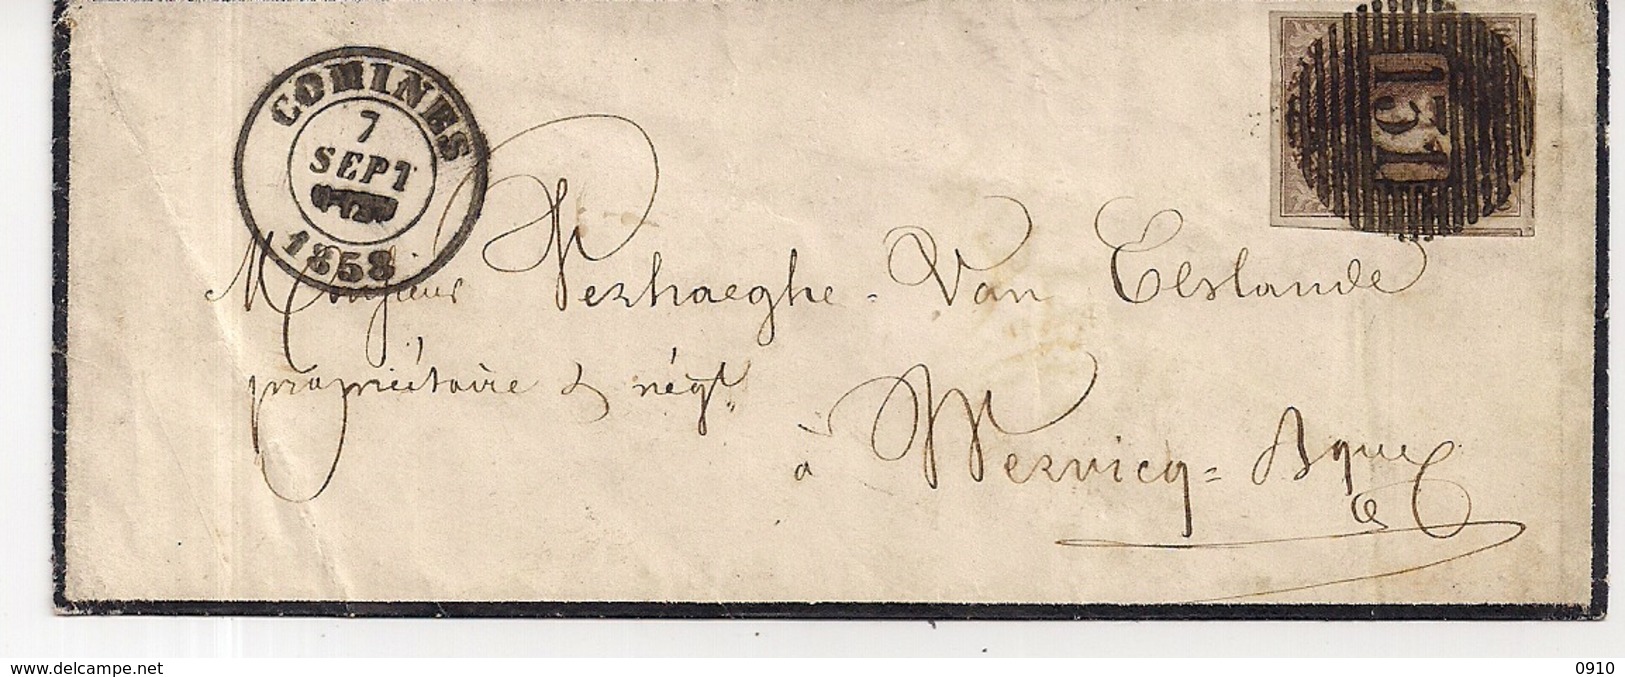 COMINES
7
SEPT
1858
151
Monsieur Verhaeghe - Van Elslande
propriétaire & négt.
à Wervicq = Bque
www.delcampe.net
0910